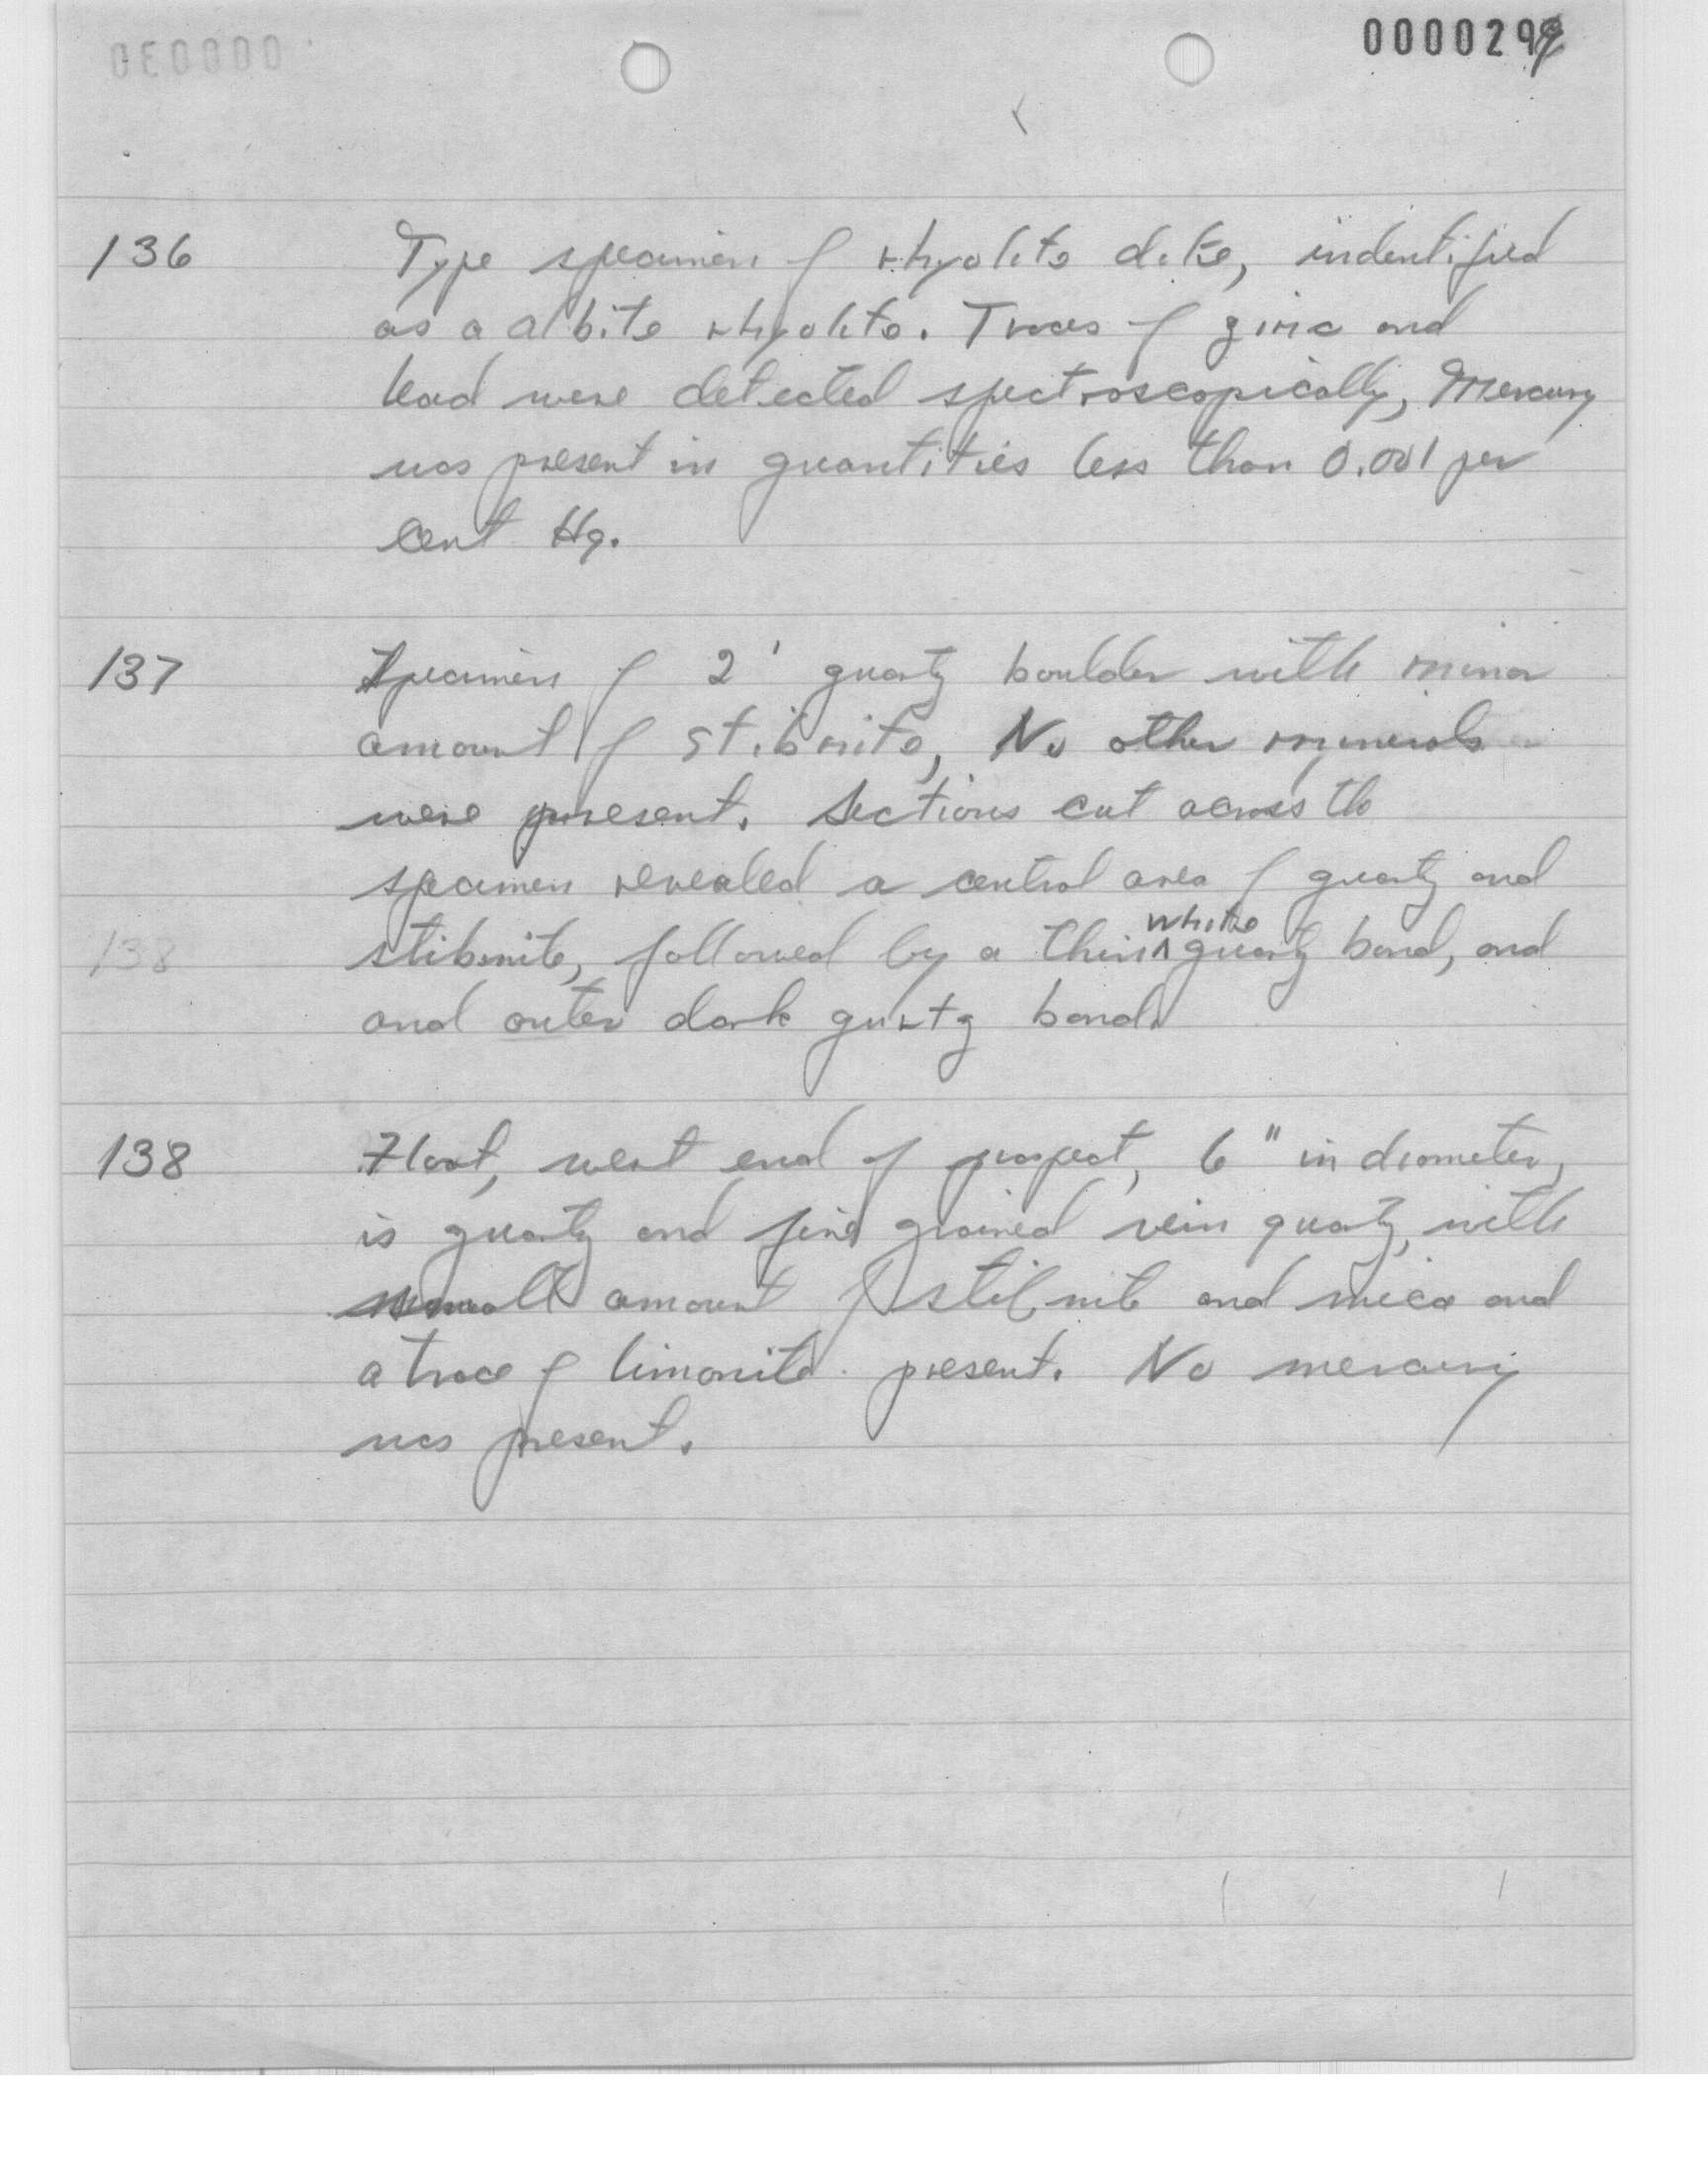 0000299
136 Type specimen of rhyolite dike, indentified
as a albite rhyolite. Traces of zinc and
lead were detected spectroscopically, Mercury
was present in quantities less than 0.001 per
cent Hg.
137 Specimen of 2' quartz boulder with minor
amount of stibnite, No other minerals
were present. Sections cut across the
specimen revealed a central area of quartz and
white
138 stibnite, followed by a thin ^ quartz band, and
and outer dark qurtz band.
138 Float, west end of prospect, 6" in diameter,
is quartz and fine grained vein quartz, with
small amount of stibnite and mica and
a trace of limonite present. No mercury
was present.